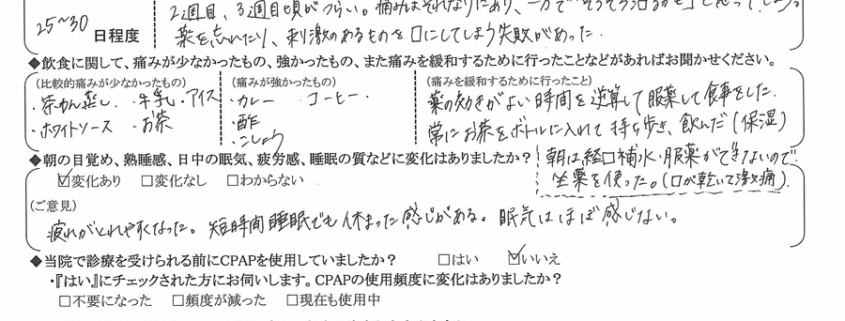 2週目、3週目頃がつらい。痛みはそれなりにあり、一方で「そろそろ治るかも」と思ってしまう。
25~30 日程度
薬を忘れたり、刺激のあるものを口にしてしまう失敗があった。
◆飲食に関して、痛みが少なかったもの、強かったもの、また痛みを緩和するために行ったことなどがあればお聞かせください。
(比較的痛みが少なかったもの) (痛みが強かったもの) (痛みを緩和するために行ったこと)
・茶わん蒸し ・牛乳 ・アイス ・カレー コーヒー・ 薬の効きがよい時間を逆算して服薬して食事をした。
・ホワイトソース ・お茶 ・酢 常にお茶をボトルに入れて持ち歩き、飲んだ(保湿)
・こしょう
◆朝の目覚め、熟睡感、日中の眠気、疲労感、睡眠の質などに変化はありましたか?
朝は経口補水・服薬ができないので
☑変化あり □変化なし □わからない
坐薬を使った。(口が乾いて激痛)
(ご意見)
疲れがとれやすくなった。短時間睡眠でも休まった感じがある。眠気はほぼ感じない。
◆当院で診療を受けられる前にCPAPを使用していましたか? □はい ☑いいえ
・『はい』にチェックされた方にお伺いします。CPAPの使用頻度に変化はありましたか?
□不要になった □頻度が減った □現在も使用中